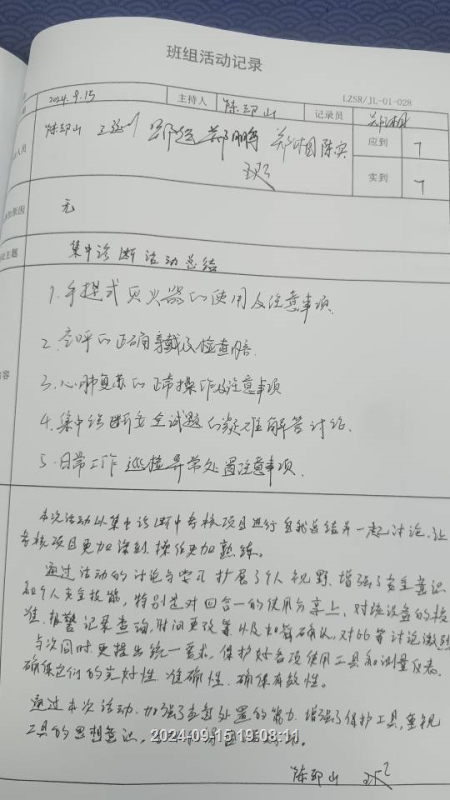 班组活动记录
LZSR/JL-01-028
2024.9.15 主持人 陈邵山 记录员
人员 陈邵山 郑鹏 陈实 应到 7
实到 7
原因 无
主题 集中诊断活动总结
内容
1.手提式灭火器的使用及注意事项.
2.空呼的正确穿戴及检查内容.
3.心肺复苏的正常操作及注意事项
4.集中诊断安全试题的疑难解答讨论.
5.日常工作巡检异常处置注意事项.
本次活动以集中诊断中考核项目进行自我总结并一起讨论,让
考核项目更加深刻,操作更加熟练。
通过活动的讨论与学习扩展了个人视野,增强了安全意识
和个人安全技能,特别是对四合一的使用分享上,对该设备的校
准,报警记录查询,时间更改等以及如何确认,对的等讨论激烈
与次同时更提出统一要求,保护好各项使用工具和测量仪表,
确保它们的完好性,准确性,确保有效性。
通过本次活动,加强了应急处置的能力,增强了保护工具,重视
工具的思想意识,
2024-09-15 19:08:11
陈邵山